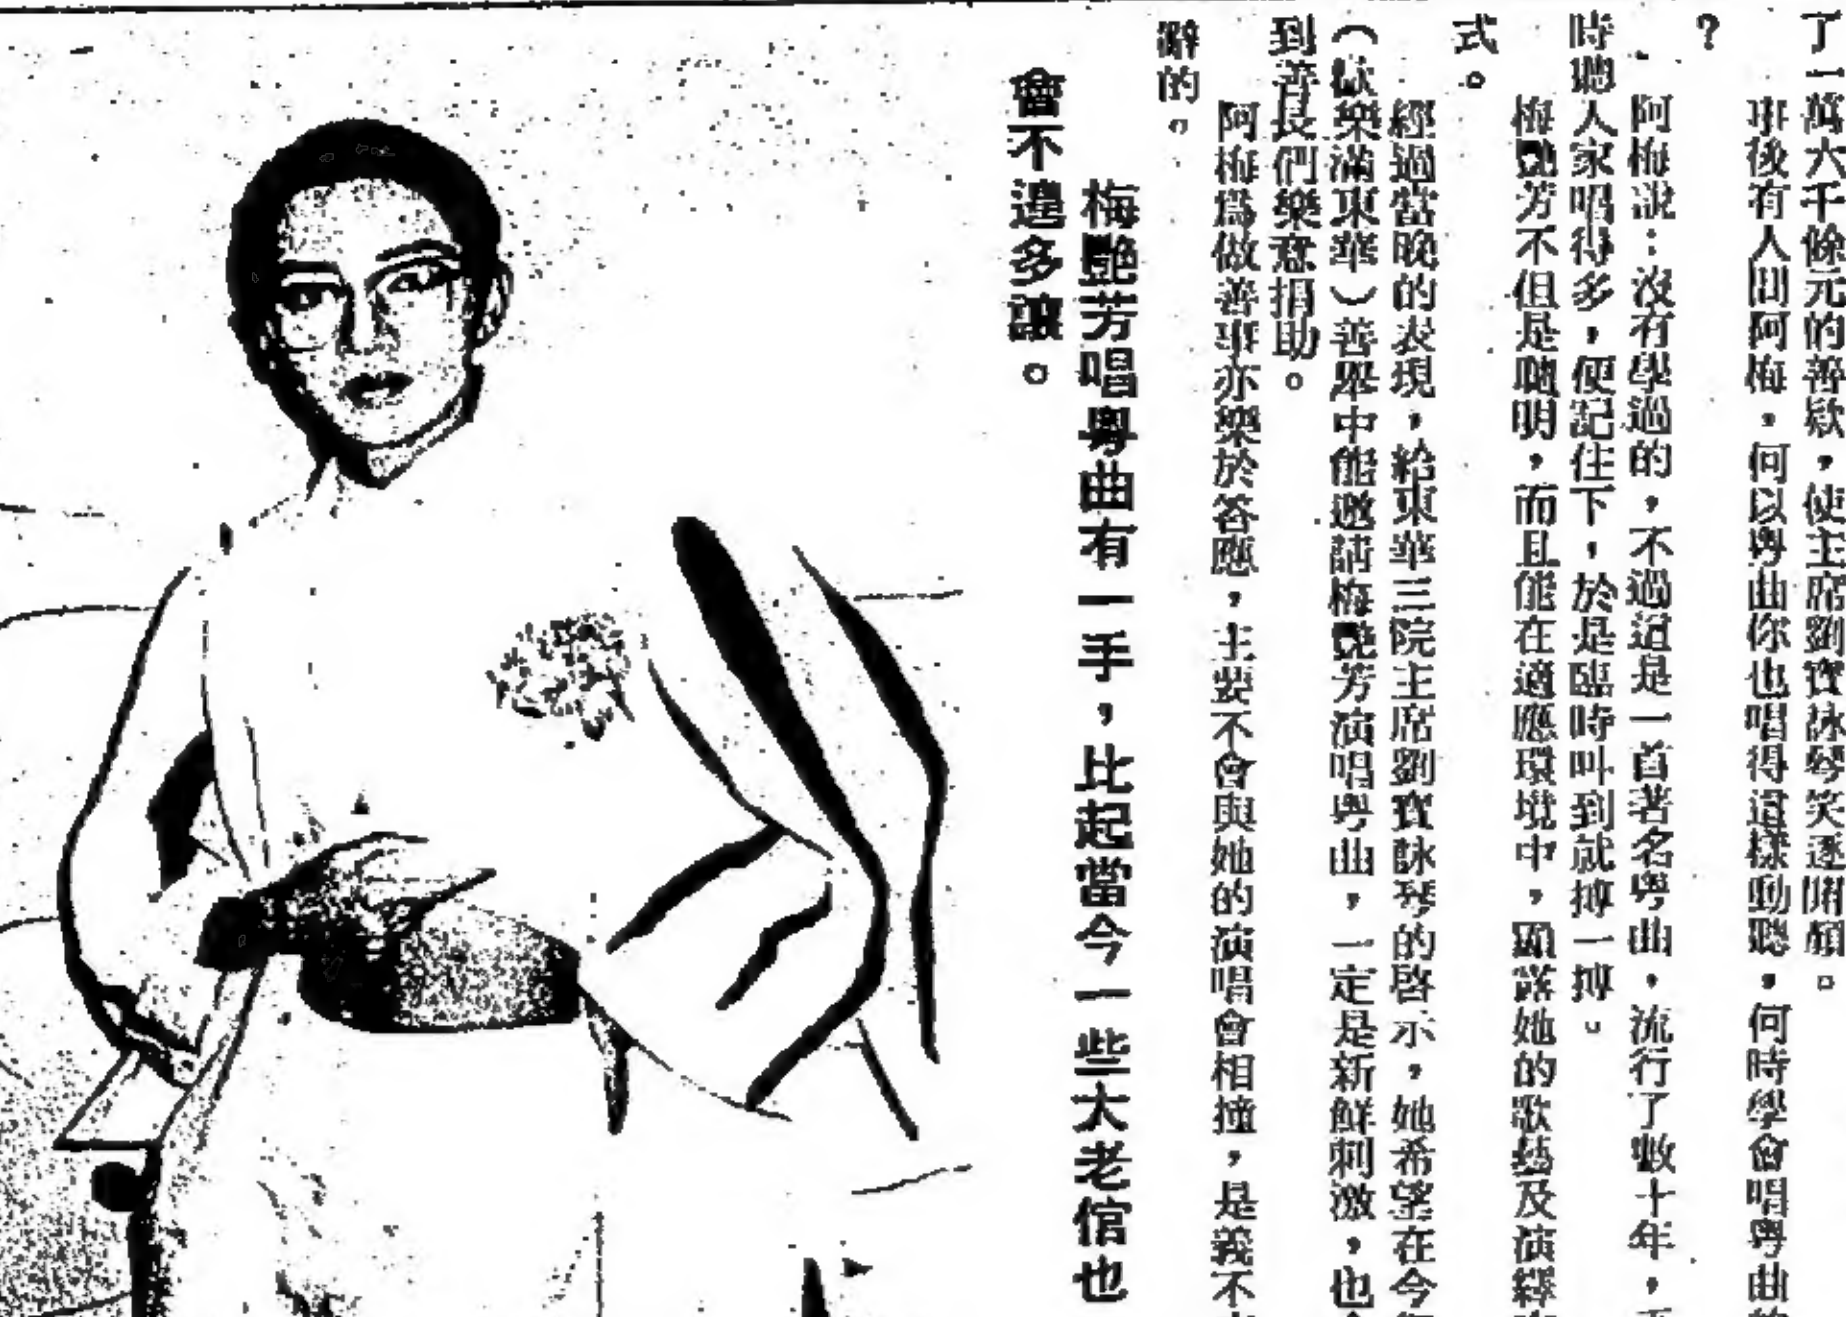 了一萬六千餘元的善欵，使主席劉寶詠琴笑逐開顏。
事後有人問阿梅，何以粵曲你也唱得這樣動聽，何時學會唱粵曲
？
阿梅說：沒有學過的，不過這是一首著名粵曲，流行了數十年，
時聽人家唱得多，便記住下，於是臨時叫到就搏一搏。
梅艷芳不但是聰明，而且能在適應環境中，顯露她的歌藝及演繹
式。
經過當晚的表現，給東華三院主席劉寶詠琴的啓示，她希望在今
（歡樂滿東華）善舉中能邀請梅艷芳演唱粵曲，一定是新鮮刺激，也
到善長們樂意捐助。
阿梅爲做善事亦樂於答應，主要不會與她的演唱會相撞，是義不
辭的。
梅艷芳唱粵曲有一手，比起當今一些大老倌也
會不遑多讓。